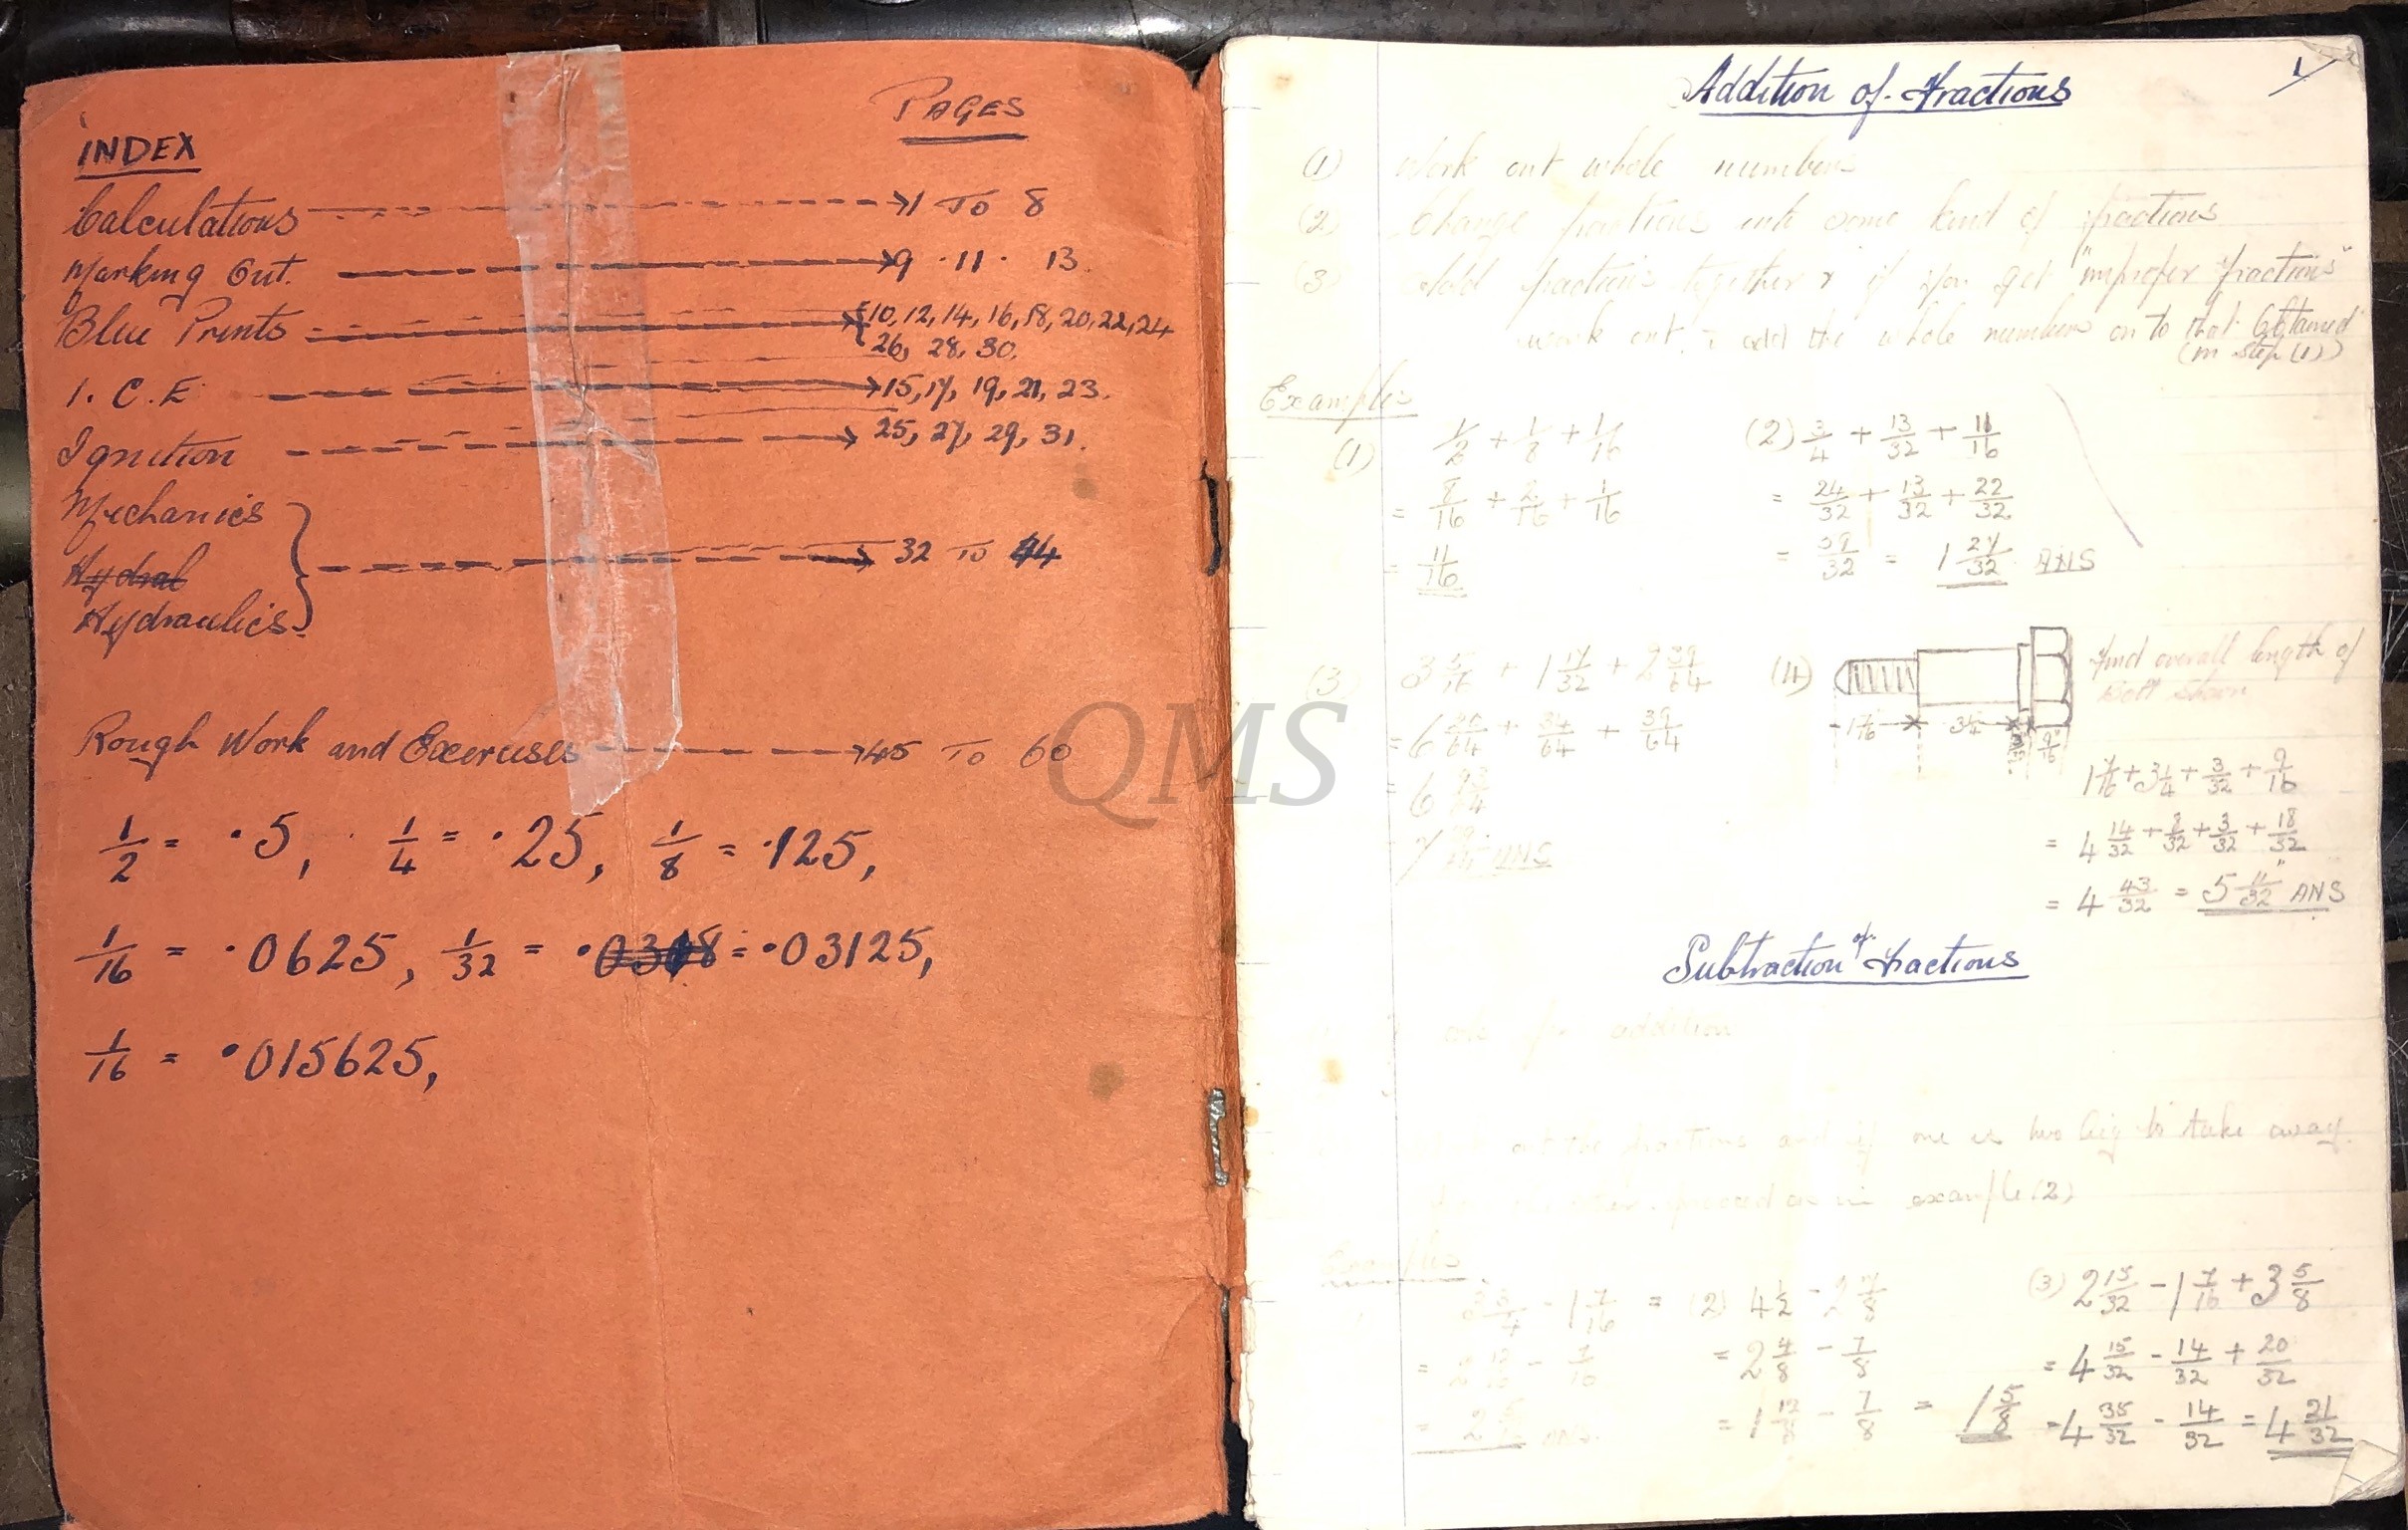 INDEX
PAGES
Calculations 1 TO 8
Marking Out. 9 . 11 . 13.
Blue Prints {10, 12, 14, 16, 18, 20, 22, 24
26, 28, 30.
I. C. E. 15, 17, 19, 21, 23.
Ignition 25, 27, 29, 31.
Mechanics
Hydral
Hydraulics. } 32 TO 44
Rough Work and Exercises 45 TO 60
1/2 = .5, 1/4 = .25, 1/8 = .125,
1/16 = .0625, 1/32 = .03125,
1/16 = .015625,
QMS
1
Addition of Fractions
(1) Work out whole numbers
(2) Change fractions into same kind of fractions
(3) Add fractions together & if you get "improper fractions"
work out, & add the whole number on to that Obtained
(in step (1))
Examples
(1) 1/2 + 1/8 + 1/16
= 8/16 + 2/16 + 1/16
= 11/16
(2) 3/4 + 13/32 + 11/16
= 24/32 + 13/32 + 22/32
= 59/32 = 1 27/32 ANS
(3) 3 5/16 + 1 17/32 + 2 39/64
= 6 20/64 + 34/64 + 39/64
= 6 93/64
ANS
(4) Find overall length of
bolt shown
1 7/16 3 1/4 3/32 9/16"
1 7/16 + 3 1/4 + 3/32 + 9/16
= 4 14/32 + 8/32 + 3/32 + 18/32
= 4 43/32 = 5 11/32" ANS
Subtraction of Fractions
for addition
out the fractions and if one is two big to take away
proceed as in example (2)
Examples
3 3/4 - 1 7/16 =
= 2 12/16 - 7/16
= 2 5/16 ANS.
(2) 4 1/2 - 2 7/8
= 2 4/8 - 7/8
= 1 12/8 - 7/8 = 1 5/8
(3) 2 15/32 - 1 7/16 + 3 5/8
= 4 15/32 - 14/32 + 20/32
= 4 35/32 - 14/32 = 4 21/32